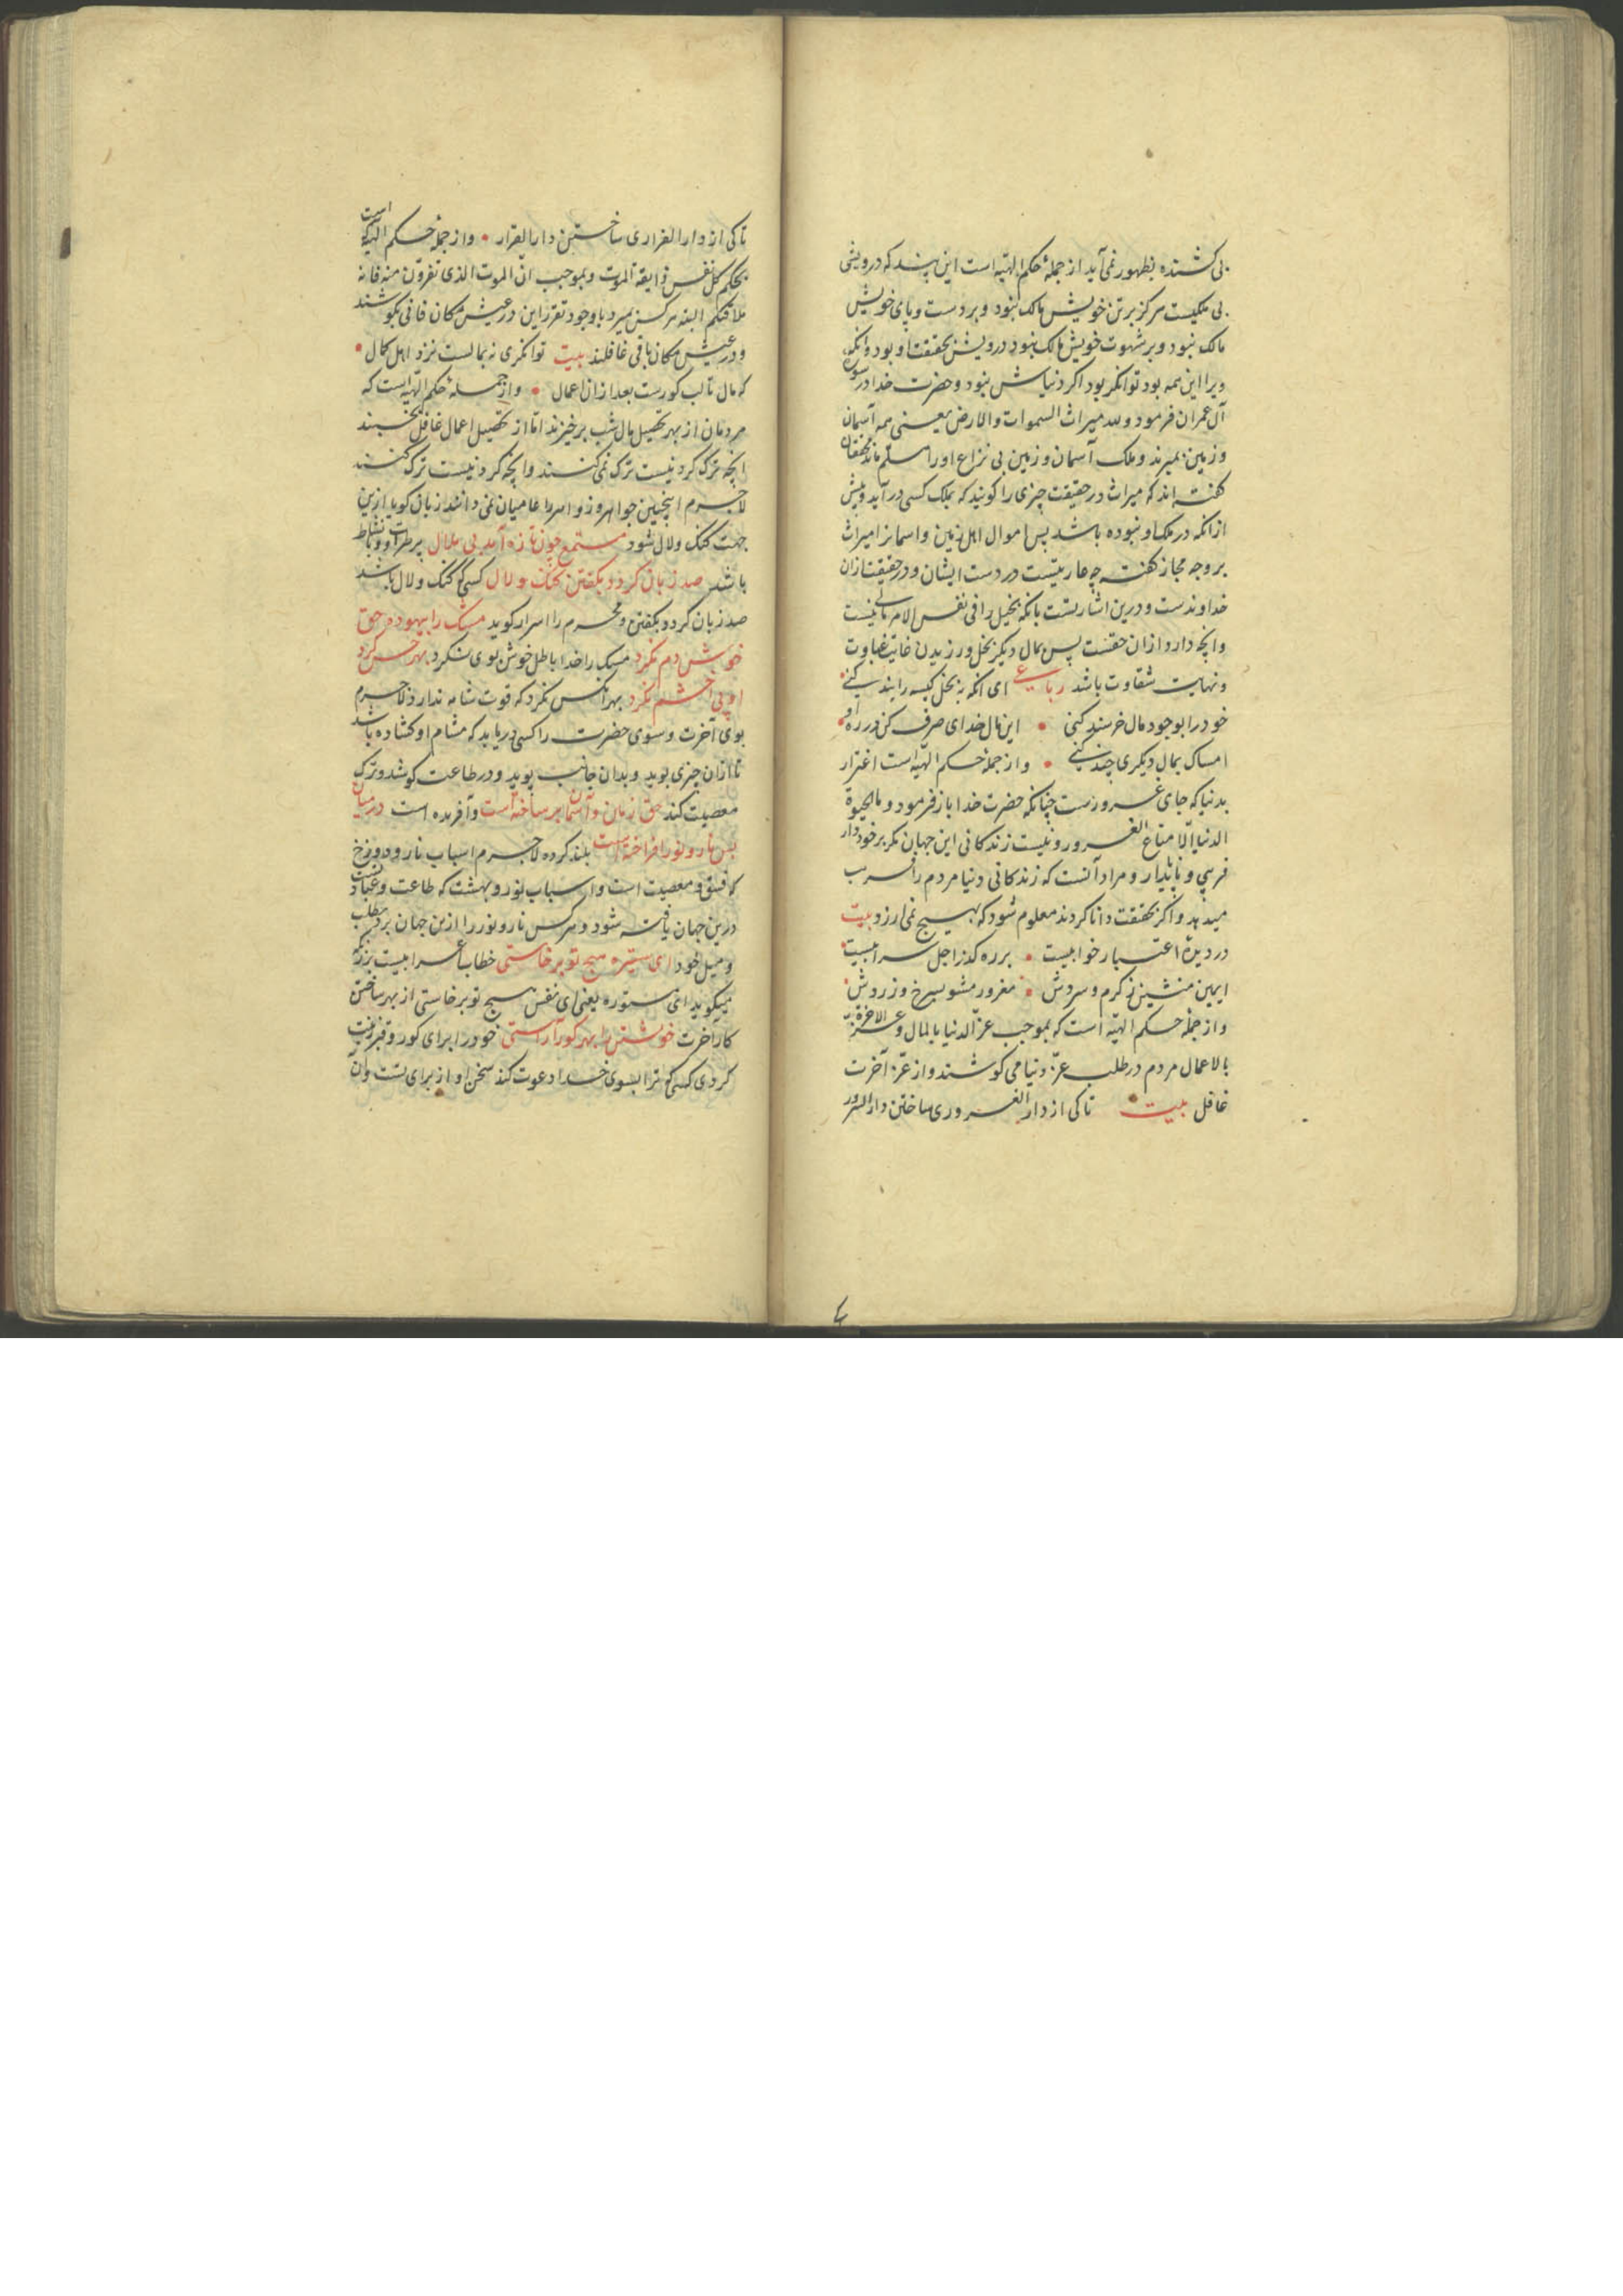 بی کشنده بظهور نمی‌آید از جملهٔ حکم الهیّه است این پند که درویشی
بی ملکیست هرکز بر تن خویش مالک نبود و بر دست و پای خویش
مالک نبود و بر شهوت خویش مالک نبود درویش بحقیقت او بود و آنکه
ویرا این همه بود توانکر بود اکر دنیاش نبود و حضرت خدا در سورهٔ
آل عمران فرمود و لله میراث السموات والارض یعنی همه آسمان
و زمین بمیرند و ملک آسمان و زمین بی نزاع او را مسلّم ماند محققان
کفته‌اند که میراث در حقیقت چیزی را کویند که بملک کسی درآید و پیش
ازانکه در ملک او نبوده باشد پس اموال اهل زمین و آسمانرا میراث
بر وجه مجاز کفته چه عاریتست در دست ایشان و در حقیقت ازان
خداوندست و درین اشارتست بانکه بخیل را فی نفس الامر مالی نیست
و انچه دارد ازان حقست پس بمال دیکر بخل ورزیدن غایت غباوت
و نهایت شقاوت باشد رباعی ای انکه ببخل کیسه را بند کنی
خود را بوجود مال خرسند کنی این مال خدای صرف کن در ره او
امساک بمال دیکری چند کنی و از جملهٔ حکم الهیّه است اغترار
بدنیا که جای غرورست چنانکه حضرت خدا باز فرمود و ما الحیوة
الدنیا الّا متاع الغرور و نیست زندکانی این جهان مکر برخورداری
فریبی و ناپایدار و مراد آنست که زندکانی دنیا مردم را فریب
میدهد و اکر بحقیقت دانا کردند معلوم شود که بهیچ نمی‌ارزد بیت
در دیدهٔ اعتبار خوابیست بر ره کذر اجل سرابیست
ایمن منشین ز کرم و سردش مغرور مشو بسرخ و زردش
و از جملهٔ حکم الهیّه است که بموجب عزّ الدنیا بالمال و عزّ الآخرة
بالاعمال مردم در طلب عزّ دنیا می کوشند و از عزّ آخرت
غافل بیت تا کی از دار الغروری ساختن دار السرور
تا کی از دار الفراری ساختن دار القرار و از جملهٔ حکم الهیّه است
بحکم کل نفس ذایقة الموت و بموجب انّ الموت الذی تفرّون منه فانه
ملاقیکم البته هرکس بمیرد با وجود تقرّر این در عیش مکان فانی بکوشند
و در عیش مکان باقی غافلند بیت توانکری نه بمالست نزد اهل کمال
که مال تا لب کورست بعد ازان اعمال و از جملهٔ حکم الهیّه است که
مردمان از بهر تحصیل مال شب برخیزند امّا از تحصیل اعمال غافل بخسبند
انچه ترک کردنیست ترک نمی کنند و انچه کردنیست ترک کنند
لاجرم اینچنین جواهر و زواهر را عامیان نمی دانند زبان کویا ازین
جهت کنک و لال شود مستمع چون تازه آمد بی ملال پر طراوت و با نشاط
باشد صد زبان کردد بکفتن کنک و لال کسی کو کنک و لال باشد
صد زبان کردد بکفتن و محرم را اسرار کوید مشک را بیهوده حق
خوش دم نکرد مشک را خدا باطل خوش بوی نکرد بهر حس کرد
او پی اخشم نکرد بهر انکس نکرد که قوت شامه ندارد لاجرم
بوی آخرت و سوی حضرت را کسی دریابد که مشام او کشاده باشد
تا ازان چیزی بوید و بدان جانب پوید و در طاعت کوشد و ترک
معصیت کند حق زمان و آسمان بر ساخته است و آفریده است در میان
بس نار و نور افراخته است بلند کرده لاجرم اسباب نار و دوزخ
که فسق و معصیت است و اسباب نور و بهشت که طاعت و عبادتست
درین جهان یافته شود و هرکس نار و نور را ازین جهان برد بطلب
و میل خود ای ستیره هیچ تو برخاستی خطاب اسرابیست بزرکه
میکوید ای مستوره یعنی ای نفس هیچ تو برخاستی از بهر ساختن
کار آخرت خویشتن را بهر کور آراستی خود را برای کور و قبر زینت
کردی کسی کو ترا بسوی خدا دعوت کند سخن او از برای تست و آن